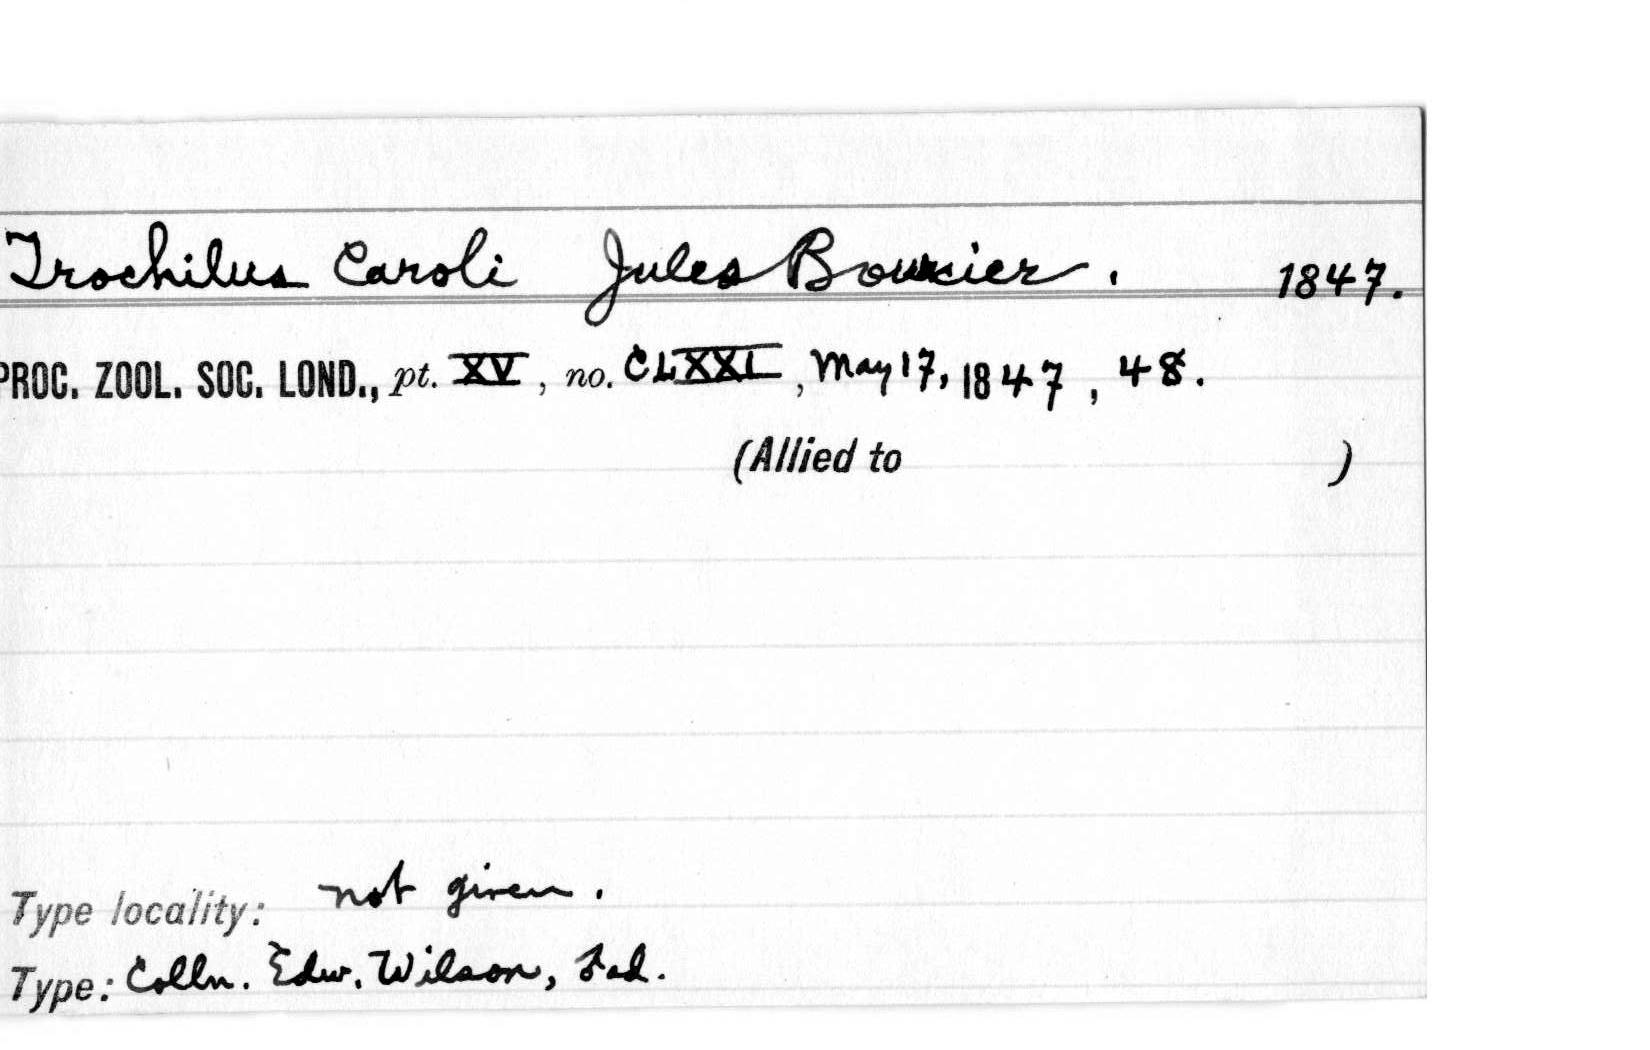 Trochilus Caroli Jules Bourcier. 1847.
PROC. ZOOL. SOC. LOND., pt. XV, no. CLXXI, May 17, 1847, 48.
(Allied to )
Type locality: not given.
Type: Colln. Edw. Wilson,